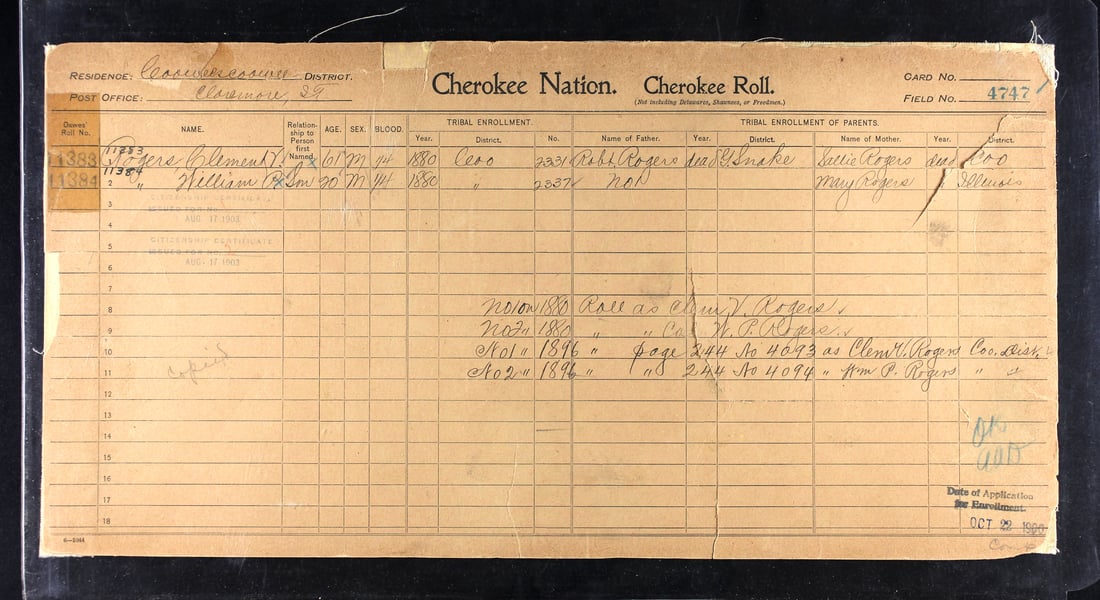 RESIDENCE: Cooweescoowee DISTRICT.
POST OFFICE: Claremore, I.T.
Cherokee Nation. Cherokee Roll.
(Not including Delawares, Shawnees, or Freedmen.)
CARD NO.
FIELD NO. 4747
Dawes' Roll No. NAME. Relationship to Person first Named. AGE. SEX. BLOOD. TRIBAL ENROLLMENT. TRIBAL ENROLLMENT OF PARENTS.
Year. District. No. Name of Father. Year. District. Name of Mother. Year. District.
11383 11383 Rogers Clement V. 61 M 1/4 1880 Coo 2331 Robt Rogers dead G. Snake Sallie Rogers dead Coo
11384 11384 2 " William P. Son 20 M 1/4 1880 " 2337 No 1 Mary Rogers " Illinois
3 CITIZENSHIP CERTIFICATE
ISSUED FOR NO.
4 AUG 17 1903
5 CITIZENSHIP CERTIFICATE
ISSUED FOR NO.
6 AUG. 17 1903
7
8 No 1 on 1880 Roll as Clem V. Rogers
9 No 2 " 1880 " " W. P. Rogers
10 No 1 " 1896 " page 244 No 4093 as Clem V. Rogers Coo. Dist.
11 No 2 " 1896 " " 244 No 4094 " Wm P. Rogers " "
copied
12
13
14
15
16
17
18
OK
Date of Application
for Enrollment.
OCT 22 1900